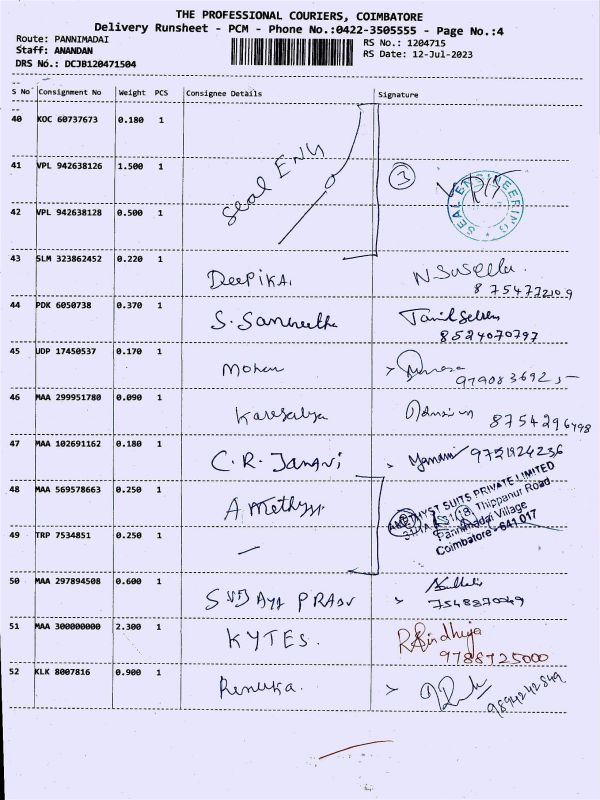 THE PROFESSIONAL COURIERS, COIMBATORE
Delivery Runsheet - PCM - Phone No.:0422-3505555 - Page No.:4
Route: PANNIMADAI
RS No.: 1204715
Staff: ANANDAN
RS Date: 12-Jul-2023
DRS No.: DCJB120471504
S No Consignment No Weight PCS Consignee Details Signature
40 KOC 60737673 0.180 1
41 VPL 942638126 1.500 1 Seal ENG 3
SEAL ENGINEERING
42 VPL 942638128 0.500 1
43 SLM 323862452 0.220 1 DeePIKA. N Suseela
44 PDK 6050738 0.370 1 S. Sangeetha Tamil Selvan
8524070797
45 UDP 17450537 0.170 1 Mohan
46 MAA 299951780 0.090 1 8754296498
47 MAA 102691162 0.180 1 C.R. JANANI 9751924236
48 MAA 569578663 0.250 1 Amethyst
AMETHYST SUITS PRIVATE LIMITED
Thippanur Road
Pannimadai Village
Coimbatore - 641 017
49 TRP 7534851 0.250 1
50 MAA 297894508 0.600 1
51 MAA 300000000 2.300 1 KYTES. R Sindhuja
9788725000
52 KLK 8007816 0.900 1 Renuka.
9894242849